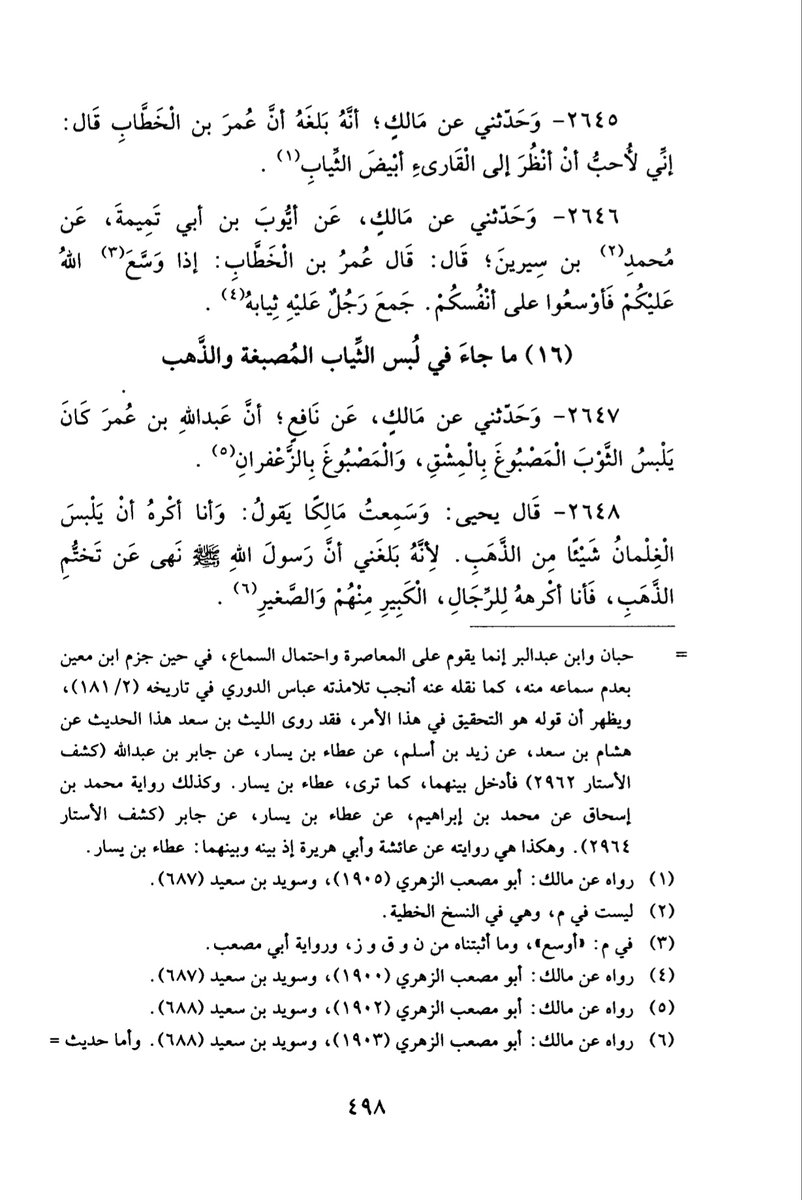 ٢٦٤٥- وَحَدّثني عن مَالكٍ؛ أنَّهُ بَلغَهُ أنَّ عُمرَ بن الْخَطَّابِ قَال:
إنِّي لأُحبُّ أنْ أنْظُرَ إلى الْقَارىءِ أبْيضَ الثِّيابِ(١) .
٢٦٤٦- وَحَدّثني عن مَالكٍ، عَن أيُّوبَ بن أبي تَمِيمةَ، عَن
مُحمدِ(٢) بن سِيرينَ؛ قَال: قَال عُمرُ بن الْخَطَّابِ: إذا وَسَّعَ(٣) اللهُ
عَليْكُمْ فَأوْسعُوا على أنْفُسكُمْ. جَمعَ رَجُلٌ عَليْهِ ثِيابهُ(٤) .
(١٦) ما جاءَ في لُبس الثِّياب المُصبغة والذَّهب
٢٦٤٧- وَحَدّثني عن مَالكٍ، عَن نَافعٍ؛ أنَّ عَبدَاللهِ بن عُمرَ كَانَ
يَلْبسُ الثَّوْبَ الْمَصْبُوغَ بِالْمِشْقِ، وَالْمَصْبُوغَ بِالزَّعْفرانِ(٥) .
٢٦٤٨- قَال يحيى: وَسَمِعتُ مَالكًا يَقولُ: وَأنا أكْرهُ أنْ يَلْبسَ
الْغِلْمانُ شَيْئًا مِن الذَّهَبِ. لِأنَّهُ بَلغَني أنَّ رَسولَ اللهِ ﷺ نَهى عَن تَختُّمِ
الذَّهَبِ، فَأنا أكْرههُ لِلرِّجَالِ، الْكَبِيرِ مِنْهُمْ وَالصَّغيرِ(٦) .
= حبان وابن عبدالبر إنما يقوم على المعاصرة واحتمال السماع، في حين جزم ابن معين
بعدم سماعه منه، كما نقله عنه أنجب تلامذته عباس الدوري في تاريخه (٢/ ١٨١)،
ويظهر أن قوله هو التحقيق في هذا الأمر، فقد روى الليث بن سعد هذا الحديث عن
هشام بن سعد، عن زيد بن أسلم، عن عطاء بن يسار، عن جابر بن عبدالله (كشف
الأستار ٢٩٦٢) فأدخل بينهما، كما ترى، عطاء بن يسار. وكذلك رواية محمد بن
إسحاق عن محمد بن إبراهيم، عن عطاء بن يسار، عن جابر (كشف الأستار
٢٩٦٤). وهكذا هي روايته عن عائشة وأبي هريرة إذ بينه وبينهما: عطاء بن يسار.
(١) رواه عن مالك: أبو مصعب الزهري (١٩٠٥)، وسويد بن سعيد (٦٨٧).
(٢) ليست في م، وهي في النسخ الخطية.
(٣) في م: «أوسع»، وما أثبتناه من ن و ق و ز، ورواية أبي مصعب.
(٤) رواه عن مالك: أبو مصعب الزهري (١٩٠٠)، وسويد بن سعيد (٦٨٧).
(٥) رواه عن مالك: أبو مصعب الزهري (١٩٠٢)، وسويد بن سعيد (٦٨٨).
(٦) رواه عن مالك: أبو مصعب الزهري (١٩٠٣)، وسويد بن سعيد (٦٨٨). وأما حديث =
٤٩٨